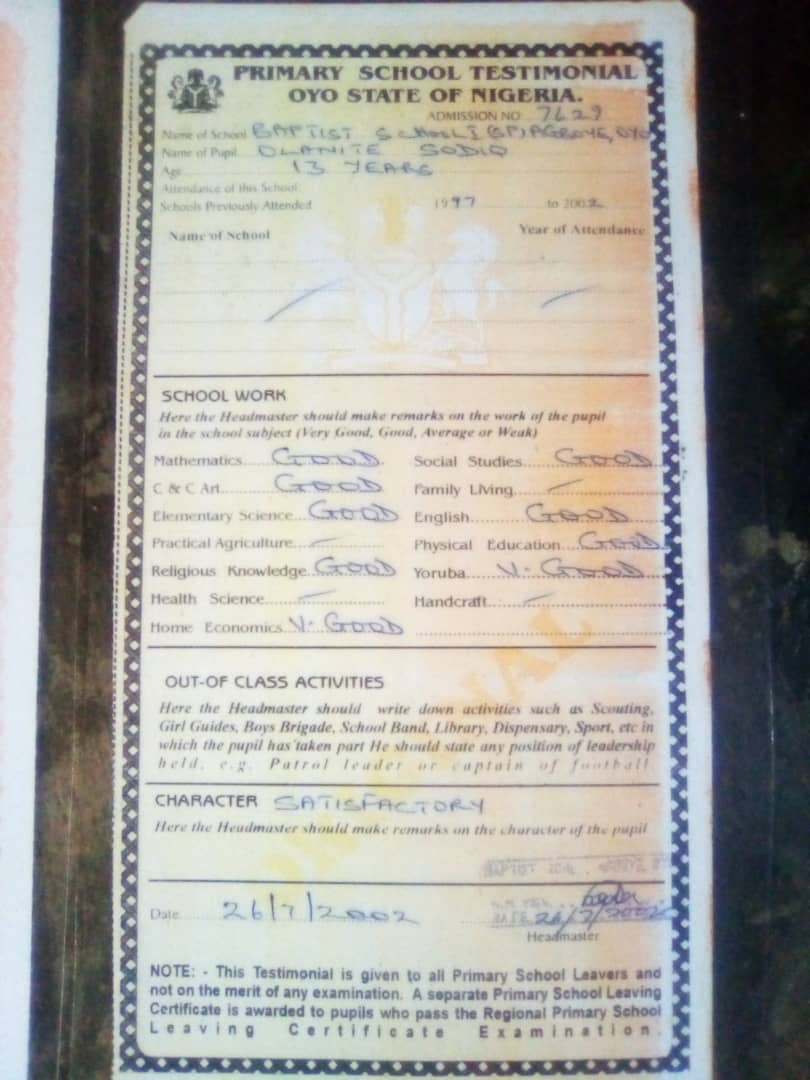 PRIMARY SCHOOL TESTIMONIAL
OYO STATE OF NIGERIA.
ADMISSION NO 7629
Name of School BAPTIST SCHOOL I (SP) AGBOYE, OYO
Name of Pupil OLANITE SODIQ
Age 13 YEARS
Attendance of this School
Schools Previously Attended 1997 to 2002
Name of School Year of Attendance
SCHOOL WORK
Here the Headmaster should make remarks on the work of the pupil
in the school subject (Very Good, Good, Average or Weak)
Mathematics GOOD Social Studies GOOD
C & C Art GOOD Family Living —
Elementary Science GOOD English GOOD
Practical Agriculture — Physical Education GOOD
Religious Knowledge GOOD Yoruba V. GOOD
Health Science — Handcraft —
Home Economics V. GOOD
ORIGINAL
OUT-OF CLASS ACTIVITIES
Here the Headmaster should write down activities such as Scouting,
Girl Guides, Boys Brigade, School Band, Library, Dispensary, Sport, etc in
which the pupil has taken part He should state any position of leadership
held, e.g. Patrol leader or captain of football
CHARACTER SATISFACTORY
Here the Headmaster should make remarks on the character of the pupil
BAPTIST
Date 26/7/2002 DATE 26/7/2002
Headmaster
NOTE: - This Testimonial is given to all Primary School Leavers and
not on the merit of any examination. A separate Primary School Leaving
Certificate is awarded to pupils who pass the Regional Primary School
Leaving Certificate Examination.